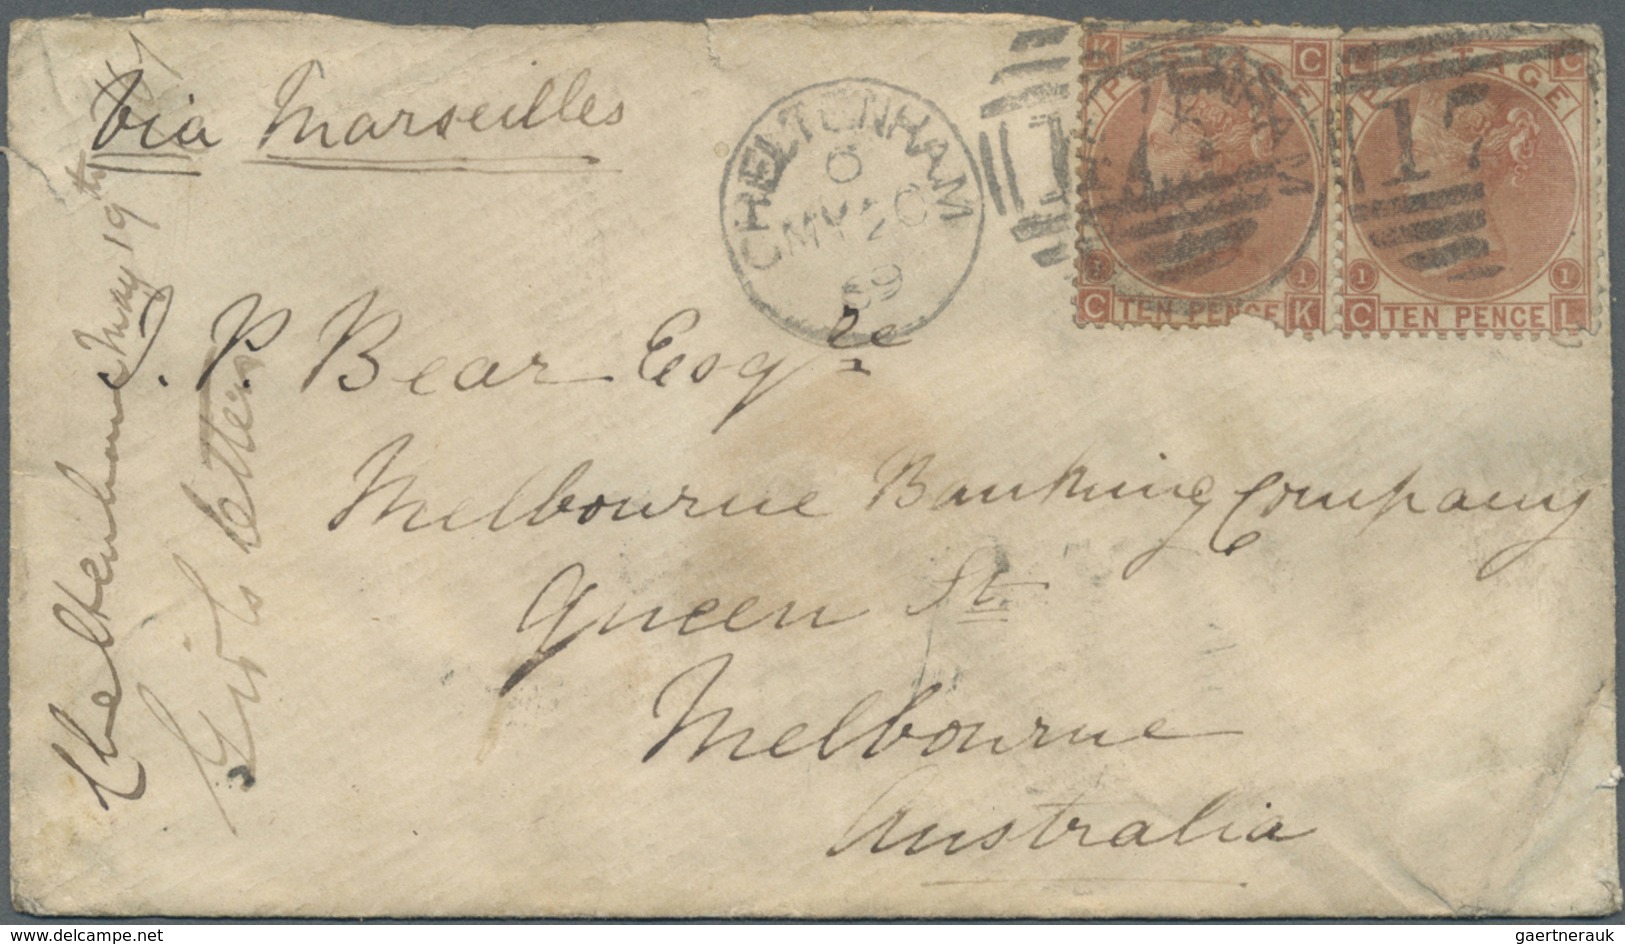 via Marseilles
CHELTENHAM
C
MY 20
69
K POSTAGE C
L POSTAGE C
C TEN PENCE K
C TEN PENCE L
1 1
1 1
J. P. Bear Esqre
Melbourne Banking Company
Queen St
Melbourne
Australia
Cheltenham May 19th
Girls letters
delcampe.net
gaertnerauk